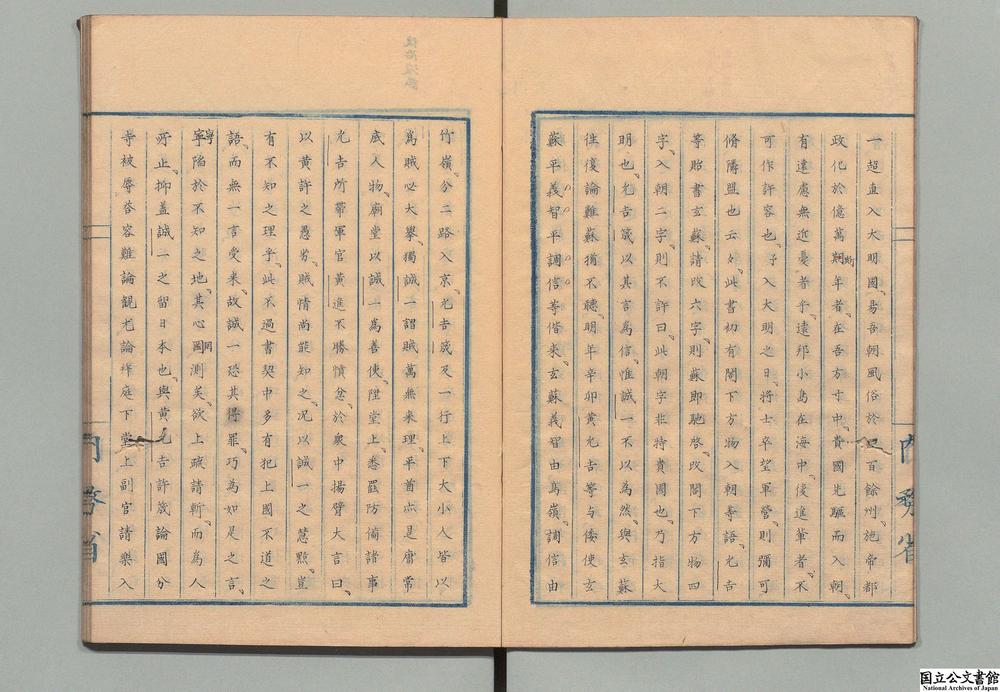 一超直入大明國易吾朝風俗於四百餘州施帝都
政化於億萬斯年者在吾方寸中貴國先驅而入朝
有遠慮無近憂者乎遠邦小島在海中後進輩者不
可作許容也予入大明之日將士卒望軍營則彌可
脩隣盟也云々此書初有閤下方物入朝等語允吉
等貽書玄蘇請改六字則蘇即馳啓改閤下方物四
字入朝二字則不許曰此朝字非特貴國也乃指大
明也允吉箴以其言爲信惟誠一不以為然與玄蘇
往復論難蘇猶不聽明年辛卯黄允吉等与倭使玄
蘇平義智平調信等偕来玄蘇義智由鳥嶺調信由
竹嶺分二路入京允吉箴及一行上下大小人皆以
爲賊必大擧獨誠一謂賊萬無来理平酋亦是庸常
底人物廟堂以誠一爲善使陞堂上悉罷防備諸事
允吉所帶軍官黄進不勝憤忿於衆中揚臂大言曰
以黄許之愚劣賊情尚能知之况以誠一之慧黠豈
有不知之理乎此不過書契中多有犯上國不道之
語而無一言受来故誠一恐其得罪巧為如是之言
寧陥於不知之地其心罔測矣欲上疏請斬而為人
所止抑盖誠一之留日本也與黄允吉許箴論國分
寺被辱荅容難論輥尤論拜庭下堂上副官請樂入
内務省
内務省
国立公文書館
National Archives of Japan